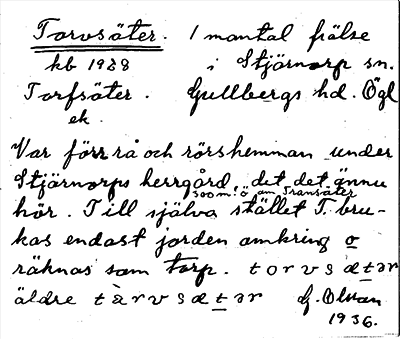 Torvsäter. 1 mantal frälse
kb 1938 i Stjärnorp sn.
Torfsäter. Gullbergs hd. Ögl
ek.
Var förr rå och rörshemman under
Stjärnorps herrgård, det det ännu
500 m. ö om Transäter
hör. Till själva stället T. bru-
kas endast jorden omkring o
räknas som torp. torvsætər
äldre tàrvsætər G. Olsson
1936.